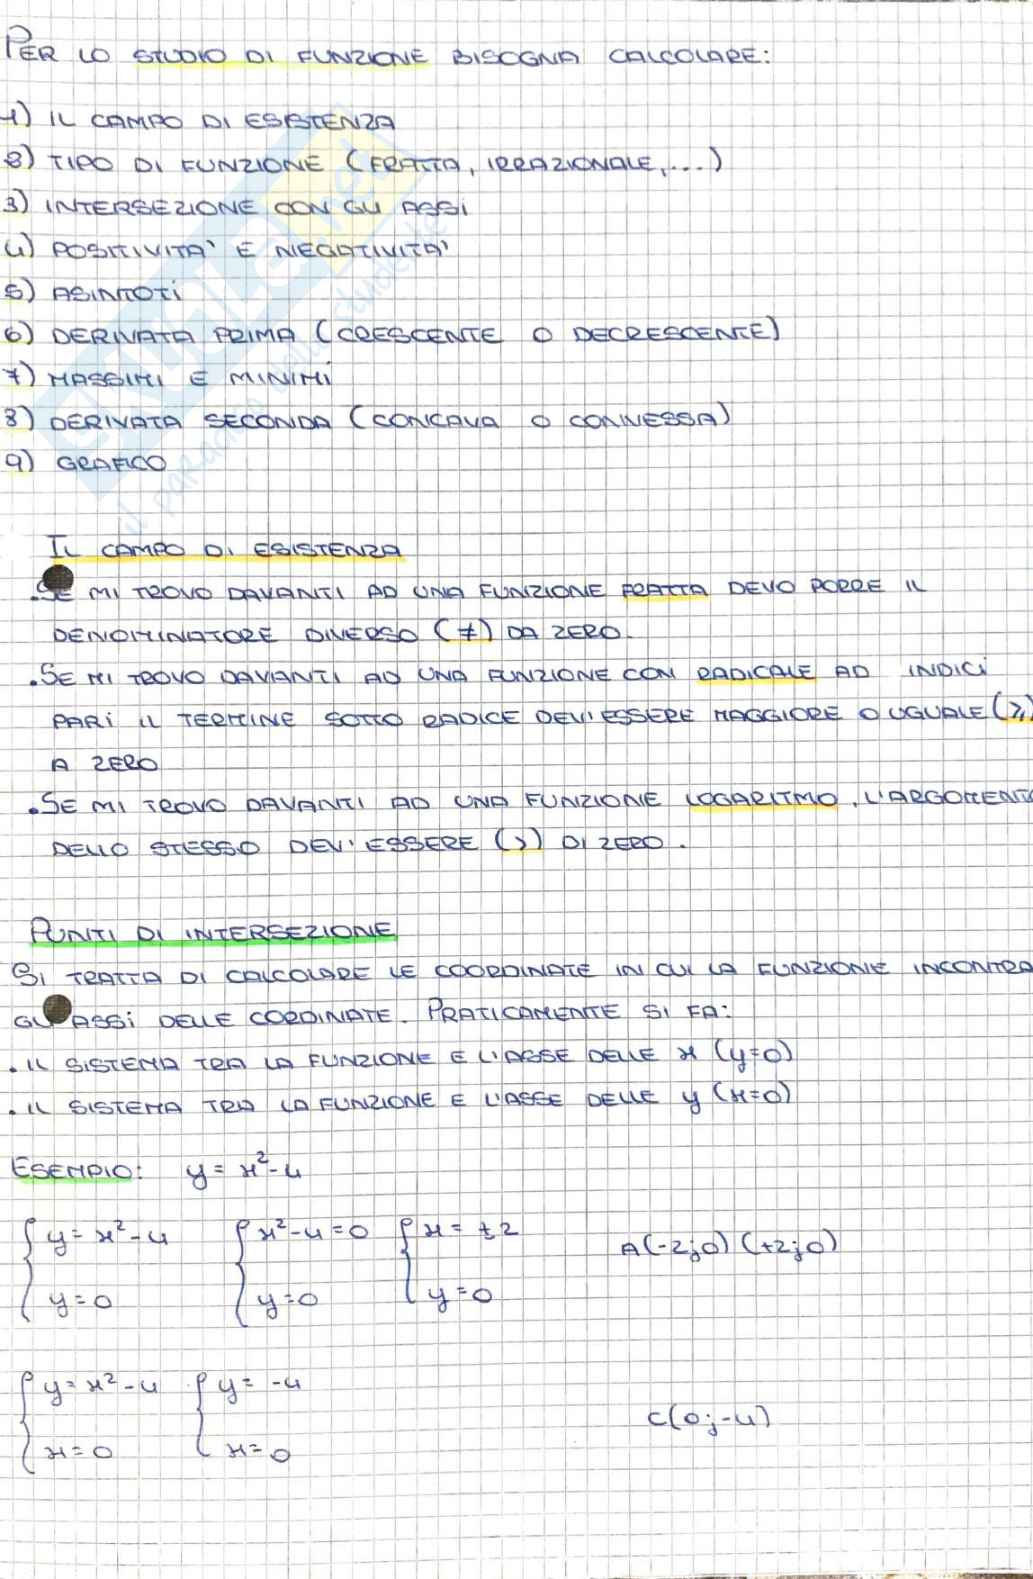 PER LO STUDIO DI FUNZIONE BISOGNA CALCOLARE:
1) IL CAMPO DI ESISTENZA
2) TIPO DI FUNZIONE (FRATTA, IRRAZIONALE,...)
3) INTERSEZIONE CON GLI ASSI
4) POSITIVITA' E NEGATIVITA'
5) ASINTOTI
6) DERIVATA PRIMA (CRESCENTE O DECRESCENTE)
7) MASSIMI E MINIMI
8) DERIVATA SECONDA (CONCAVA O CONVESSA)
9) GRAFICO
IL CAMPO DI ESISTENZA
. SE MI TROVO DAVANTI AD UNA FUNZIONE FRATTA DEVO PORRE IL
DENOMINATORE DIVERSO (≠) DA ZERO.
. SE MI TROVO DAVANTI AD UNA FUNZIONE CON RADICALE AD INDICI
PARI IL TERMINE SOTTO RADICE DEV'ESSERE MAGGIORE O UGUALE (≥)
A ZERO
. SE MI TROVO DAVANTI AD UNA FUNZIONE LOGARITMO, L'ARGOMENTO
DELLO STESSO DEV'ESSERE (>) DI ZERO.
PUNTI DI INTERSEZIONE
SI TRATTA DI CALCOLARE LE COORDINATE IN CUI LA FUNZIONE INCONTRA
GLI ASSI DELLE COORDINATE. PRATICAMENTE SI FA:
. IL SISTEMA TRA LA FUNZIONE E L'ASSE DELLE x (y=0)
. IL SISTEMA TRA LA FUNZIONE E L'ASSE DELLE y (x=0)
ESEMPIO: y = x²-4
{ y = x²-4 { x²-4=0 { x = ±2 A(-2;0) (+2;0)
y=0 y=0 y=0
{ y = x²-4 { y = -4 C(0;-4)
x=0 x=0